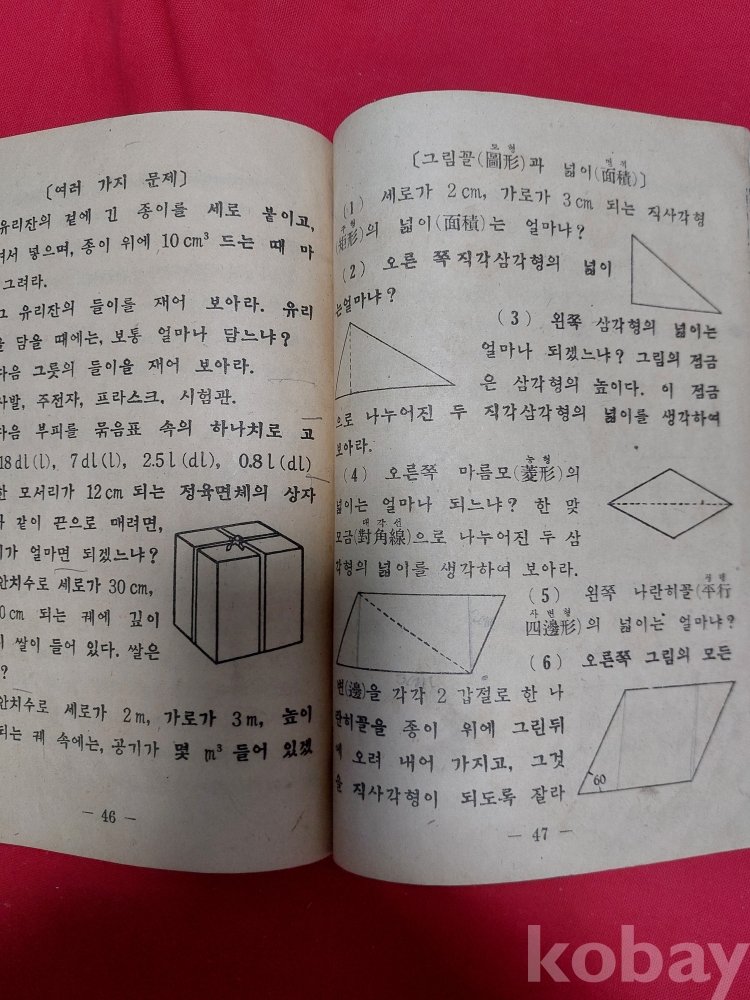 [여러 가지 문제]
유리잔의 곁에 긴 종이를 세로 붙이고,
넣으며, 종이 위에 10cm³ 드는 때 마
그려라.
그 유리잔의 들이를 재어 보아라. 유리
담을 때에는, 보통 얼마나 담느냐?
다음 그릇의 들이을 재어 보아라.
사발, 주전자, 프라스크, 시험관.
다음 부피를 묶음표 속의 하나치로 고
18dl(l), 7dl(l), 2.5l(dl), 0.8l(dl)
한 모서리가 12cm 되는 정육면체의 상자
같이 끈으로 매려면,
가 얼마면 되겠느냐?
안치수로 세로가 30cm,
0cm 되는 궤에 깊이
쌀이 들어 있다. 쌀은
?
안치수로 세로가 2m, 가로가 3m, 높이
되는 궤 속에는, 공기가 몇 m³ 들어 있겠
— 46 —
[그림꼴(圖形)과 넓이(面積)]
도형 면적
(1) 세로가 2cm, 가로가 3cm 되는 직사각형
(矩形)의 넓이(面積)는 얼마냐?
(2) 오른 쪽 직각삼각형의 넓이
는얼마냐?
(3) 왼쪽 삼각형의 넓이는
얼마나 되겠느냐? 그림의 점금
은 삼각형의 높이다. 이 점금
으로 나누어진 두 직각삼각형의 넓이를 생각하여
보아라.
능형
(4) 오른쪽 마름모(菱形)의
넓이는 얼마나 되느냐? 한 맞
대각선
모금(對角線)으로 나누어진 두 삼
각형의 넓이를 생각하여 보아라.
평행
(5) 왼쪽 나란히꼴(平行
사변형
四邊形)의 넓이는 얼마냐?
(6) 오른쪽 그림의 모든
변(邊)을 각각 2 갑절로 한 나
란히꼴을 종이 위에 그린뒤
에 오려 내어 가지고, 그것
을 직사각형이 되도록 잘라
60
— 47 —
kobay